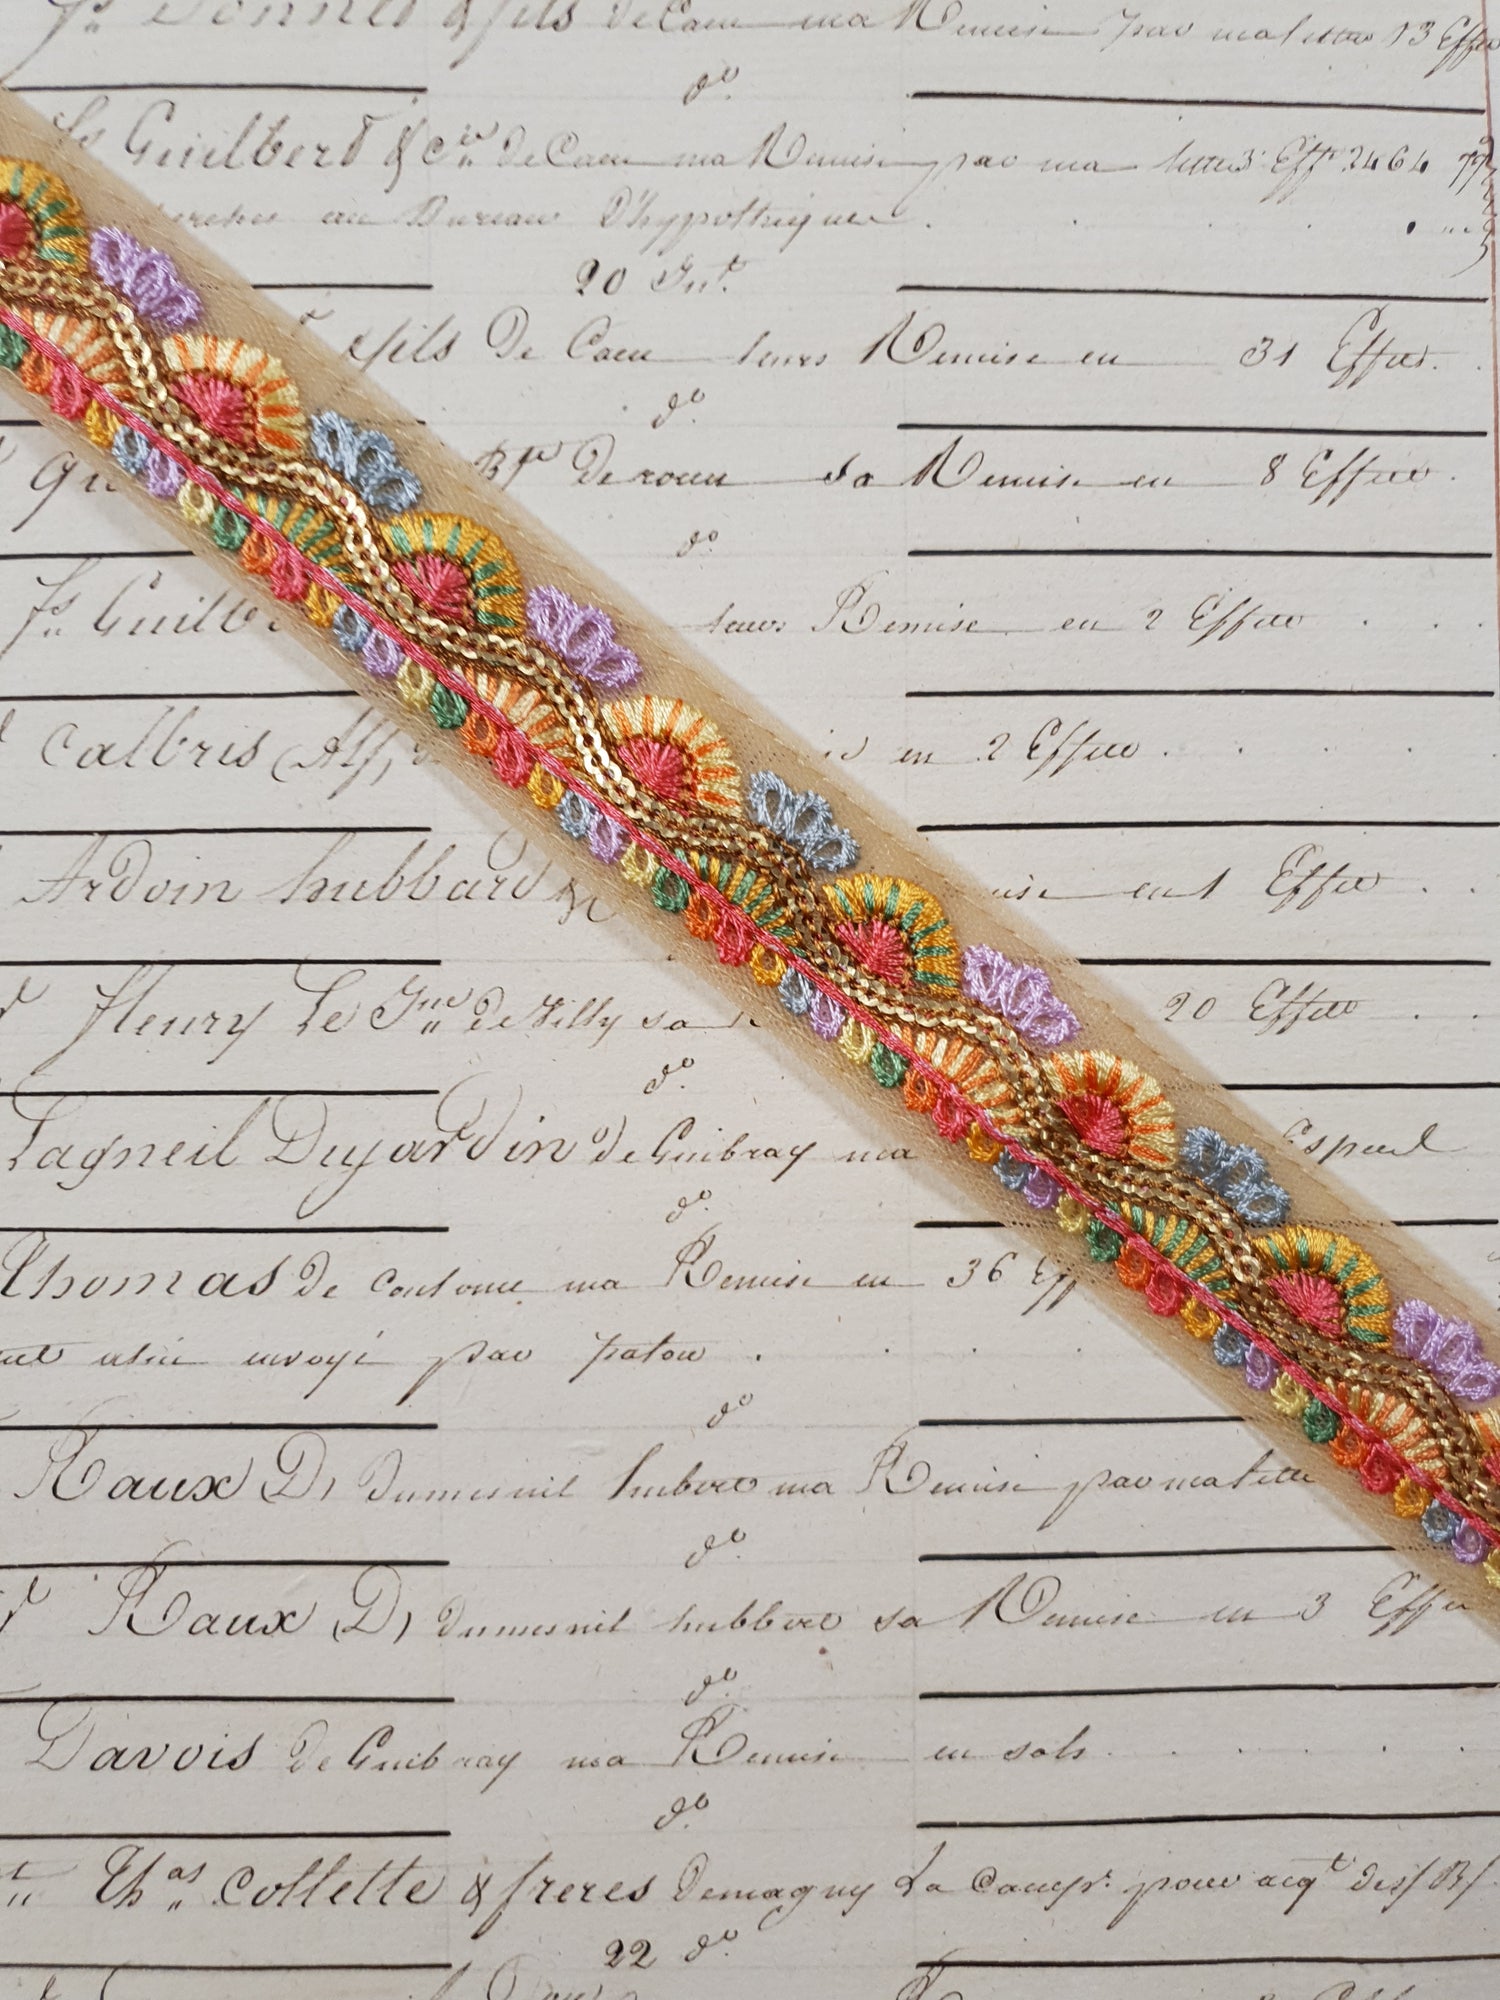 & fils de Caen ma Remise par ma lettre 13 Effets
do.
Guilbert & Cie de Caen ma Remise par ma lettre 3 Eff 2464
au Bureau D'hypothèques
20 Jut.
& fils De Caen leurs Remise en 31 Effets.
do.
De rouen sa Remise en 8 Effets.
do.
leurs Remise en 2 Effets
Calbris (Alf, en 2 Effets
Ardoin hubbard & en 1 Effets
fleury Le Jne de Tilly sa 20 Effets
do.
Lagneil Dujardin de Guibray ma
do.
Thomas de coutance ma Remise en 36 Eff
envoyé par
do.
Raux D, dumesnil hubert ma Remise par ma lettre
do.
Raux D, dumesnil hubbert sa Remise en 3 Effets
do.
Davois de Guibray ma Remise en sols
do.
Thas Collette & freres de magny La pour acqt des/B/
22 do.